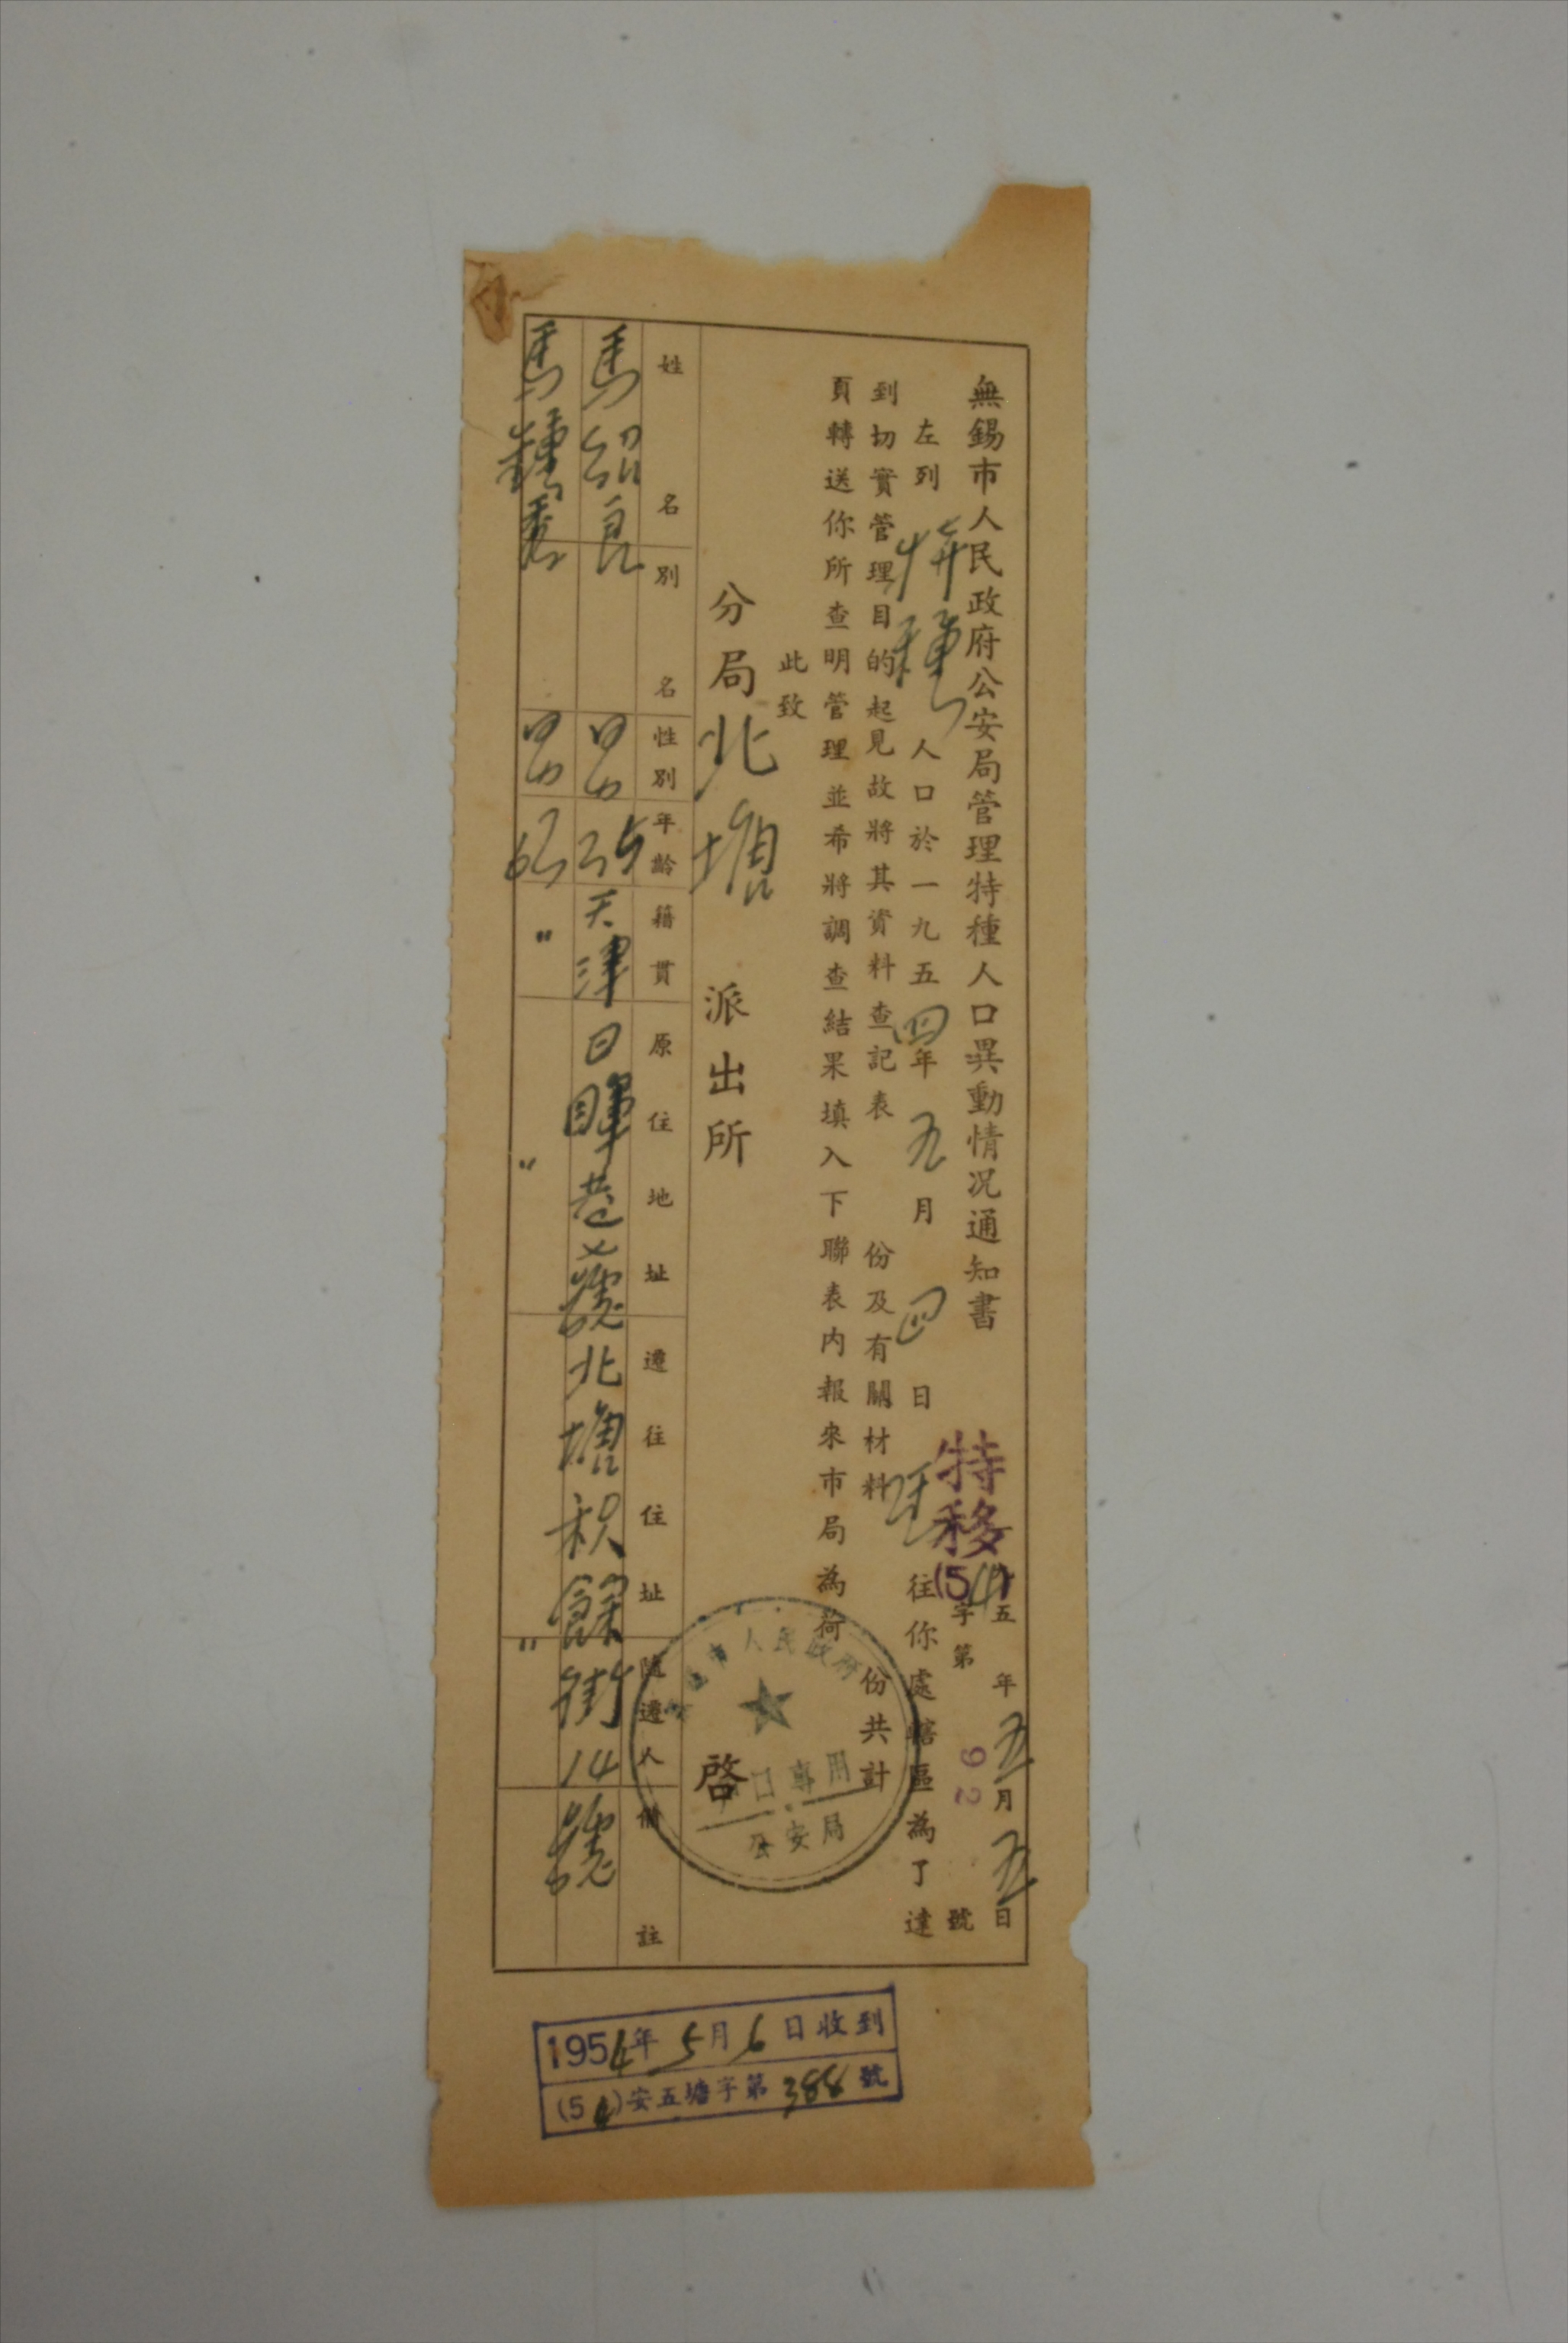 無錫市人民政府公安局管理特種人口異動情況通知書
五四年五月五日
特移(54)字第92號
左列特種人口於一九五四年五月四日遷往你處轄區為了達
到切實管理目的起見故將其資料查記表 份及有關材料 份共計
頁轉送你所查明管理並希將調查結果填入下聯表內報來市局為荷
此致
分局北塘派出所
啓
無錫市人民政府
戶口專用
公安局
姓名 別名 性別 年齡 籍貫 原住地址 遷往住址 隨遷人 備註
馬紹良 男 35 天津 日暉巷 號 北塘秋餘街14號
馬 男 〃 〃 〃
1954年5月6日收到
(54)安五塘字第388號